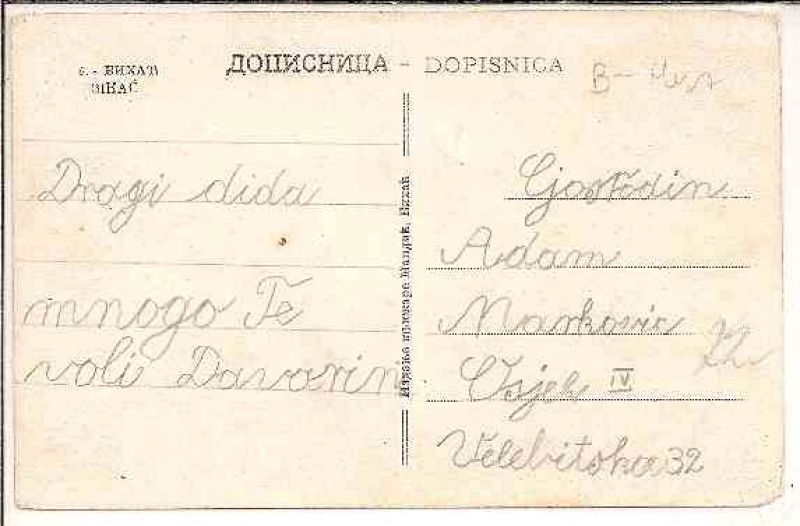 6. - БИХАЋ
BIHAĆ
ДОПИСНИЦА - DOPISNICA
Dragi dida
mnogo Te
voli Davorin
Издање књижаре Мандић, Бихаћ
Gospodin
Adam
Markovic
Osjek IV
Velebitska 32